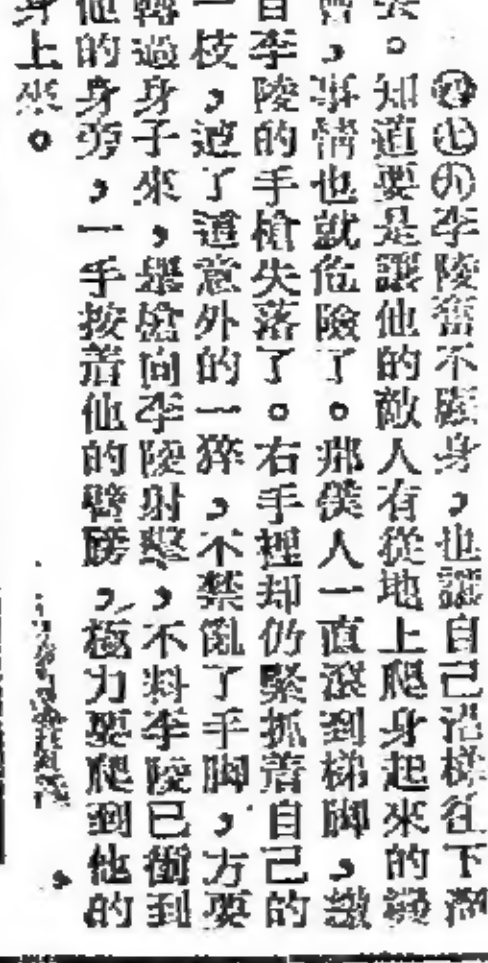 ㊣㊣㊣李陵奮不顧身，也讓自己沿梯往下滾
去。知道要是讓他的敵人有從地上爬身起來的機
會，事情也就危險了。那僕人一直滾到梯脚，纔
自李陵的手槍失落了。右手裡却仍緊抓着自己的
一枝，遭了這意外的一猝，不禁亂了手脚，方要
轉過身子來，舉槍向李陵射擊，不料李陵已衝到
他的身旁，一手按着他的臂膀，極力要爬到他的
身上來。